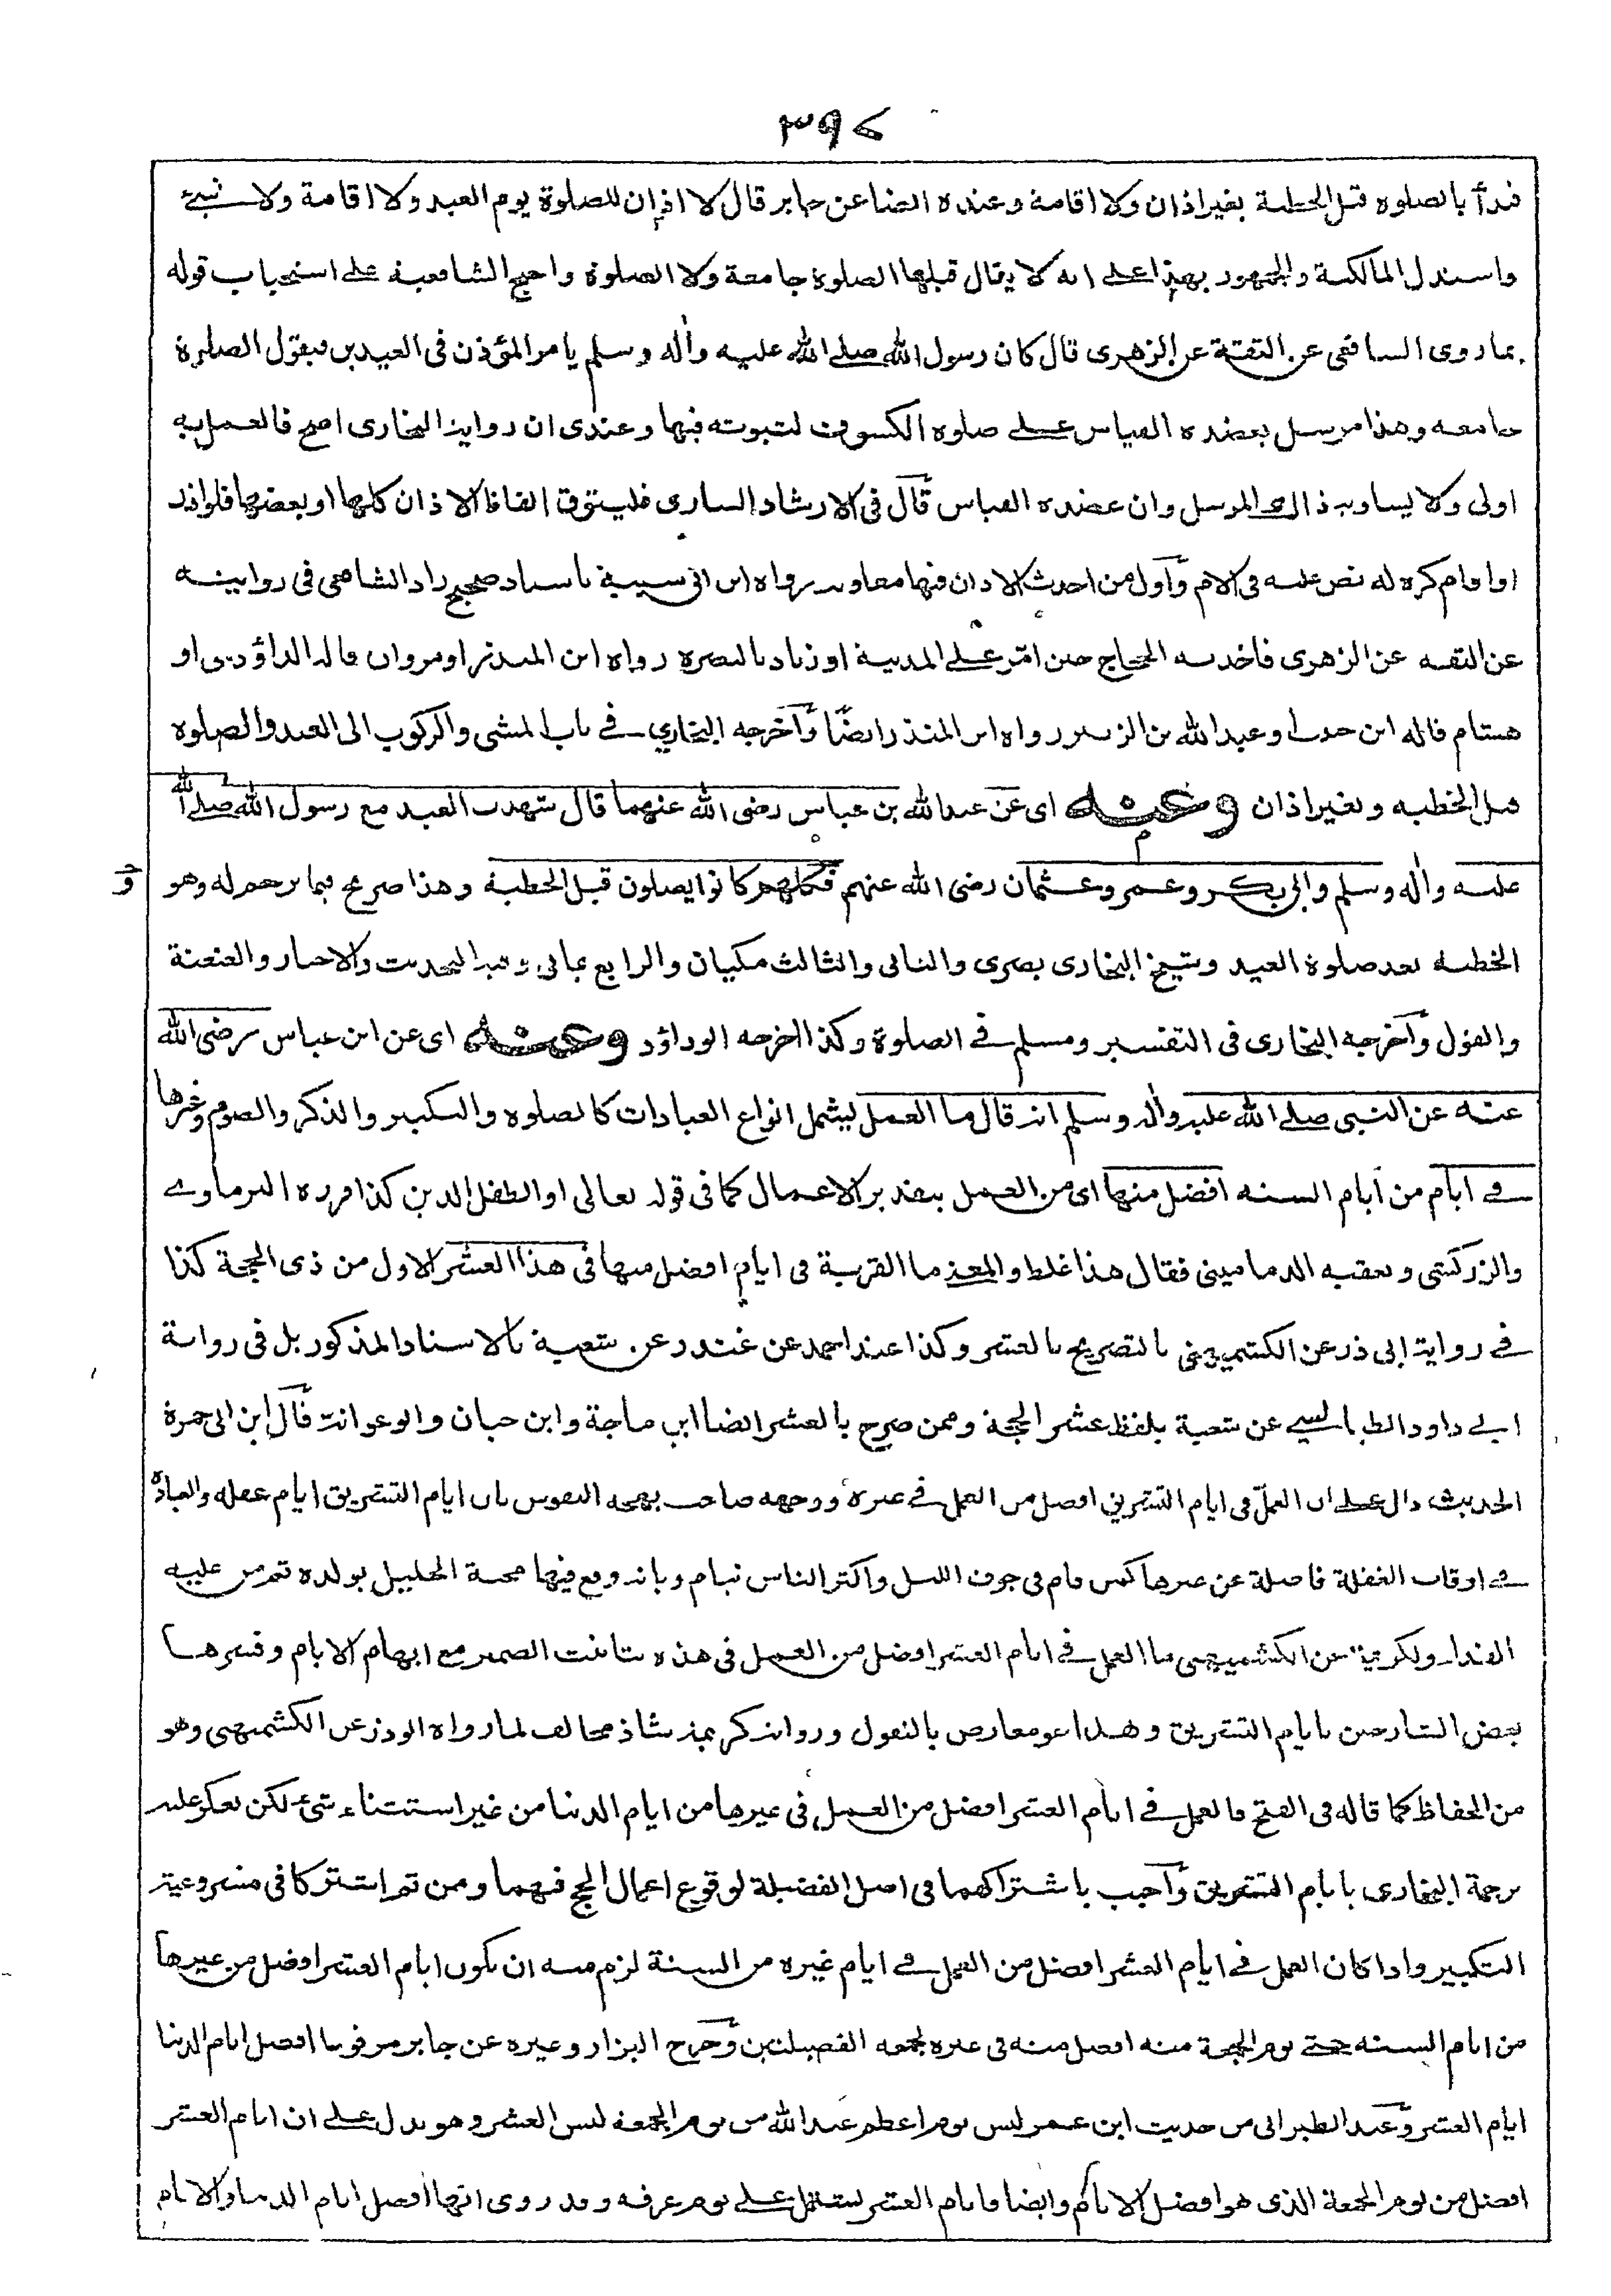 ٣٩٧
فبدأ بالصلوة قبل الخطبة بغير اذان ولا اقامة وعنده ايضا عن جابر قال لا اذان للصلوة يوم العيد ولا اقامة ولا شيئ
واستدل المالكية والجمهور بهذا على انه لا يقال قبلها الصلوة جامعة ولا الصلوة واحتج الشافعية على استحباب قوله
بما روى الشافعى عن الثقة عن الزهرى قال كان رسول الله صلے الله عليه واٰله وسلم يامر المؤذن فى العيدين فيقول الصلوة
جامعه وهذا مرسل يعضده القياس علے صلوة الكسوف لثبوته فيها وعندى ان رواية البخارى اصح فالعمل به
اولى ولا يساويه ذالك المرسل وان عضده القياس قال فى الارشاد السارى فليتوق الفاظ الاذان كلها او بعضها فلو اذن
او اقام كره له نص عليه فى الام واول من احدث الاذان فيها معاوية رواه ابن ابى شيبة باسناد صحيح زاد الشافعى فى روايته
عن الثقه عن الزهرى فاخذ به الحجاج حين امّر علے المدينة او زياد بالبصرة رواه ابن المنذر او مروان قاله الداؤدى او
هشام قاله ابن حبيب او عبد الله بن الزبير رواه ابن المنذر ايضًا واخرجه البخاري فے باب المشى والركوب الى العيد والصلوة
قبل الخطبه وبغير اذان وعنه اى عن عبد الله بن عباس رضى الله عنهما قال شهدت العيد مع رسول الله صلے الله
عليه واٰله وسلم وابى بكر وعمر وعثمان رضى الله عنهم فكلهم كانوا يصلون قبل الخطبة وهذا صريح فيما ترجم له وهو
الخطبه بعد صلوة العيد وشيخ البخارى بصرى والثانى والثالث مكيان والرابع يمانى وفيه التحديث والاخبار والعنعنة
والقول واخرجه البخارى فى التفسير ومسلم فے الصلوة وكذا اخرجه ابوداؤد وعنه اى عن ابن عباس رضى الله
عنه عن النبى صلے الله عليه واٰله وسلم انه قال ما العمل ليشمل انواع العبادات كالصلوه والتكبير والذكر والصوم وغيرها
فے ايام من ايام السنه افضل منها اى من العمل بتقدير الاعمال كما فى قوله تعالى او الطفل الذين كذا قرره البرماوے
والزركشى وتعقبه الدمامينى فقال هذا غلط والمعنے ما القربة فى ايام افضل منها فى هذا العشر الاول من ذى الحجة كذا
فے رواية ابى ذر عن الكشميهنى بالتصريح بالعشر وكذا عند احمد عن غندر عن شعبة بالاسناد المذكور بل فى رواية
ابے داود الطيالسے عن شعبة بلفظ عشر الحجة وممن صرح بالعشر ايضا ابن ماجة وابن حبان وابو عوانة قال ابن ابى جمرة
الحديث دال علے ان العمل فى ايام التشريق افضل من العمل فے غيره ووجهه صاحب بهجه النفوس بان ايام التشريق ايام غفله والعبادة
فے اوقات الغفلة فاضلة عن غيرها كمن قام فى جوف الليل واكثر الناس نيام وبانه وقع فيها محنة الخليل بولده ثم من عليه
الفداء ولكريمة عن الكشميهنى ما العمل فے ايام العشر افضل من العمل فى هذه بتانيث الضمير مع ابهام الايام وفسرها
بعض الشارحين بايام التشريق وهذا هو معارض بالنقول ورواية كريمة شاذ مخالف لما رواه ابوذر عن الكشميهنى وهو
من الحفاظ كما قاله فى الفتح فالعمل فے ايام العشر افضل من العمل فى غيرها من ايام الدنيا من غير استثناء شئ لكن يعكر عليه
ترجمة البخارى بايام التشريق واجيب باشتراكهما فى اصل الفضيلة لوقوع اعمال الحج فيهما ومن ثم اشتركا فى مشروعية
التكبير واذا كان العمل فے ايام العشر افضل من العمل فے ايام غيره من السنة لزم منه ان يكون ايام العشر افضل من غيرها
من ايام السنه حتے يوم الجمعة منه افضل منه فى غيره لجمعه الفضيلتين وخرج البزار وغيره عن جابر مرفوعا افضل ايام الدنيا
ايام العشر وعند الطبرانى من حديث ابن عمر ليس يوم اعظم عند الله من يوم الجمعة ليس العشر وهو يدل علے ان ايام العشر
افضل من يوم الجمعة الذى هو افضل الايام وايضا فايام العشر يشتمل علے يوم عرفه وقد روى انها افضل ايام الدنيا والايام